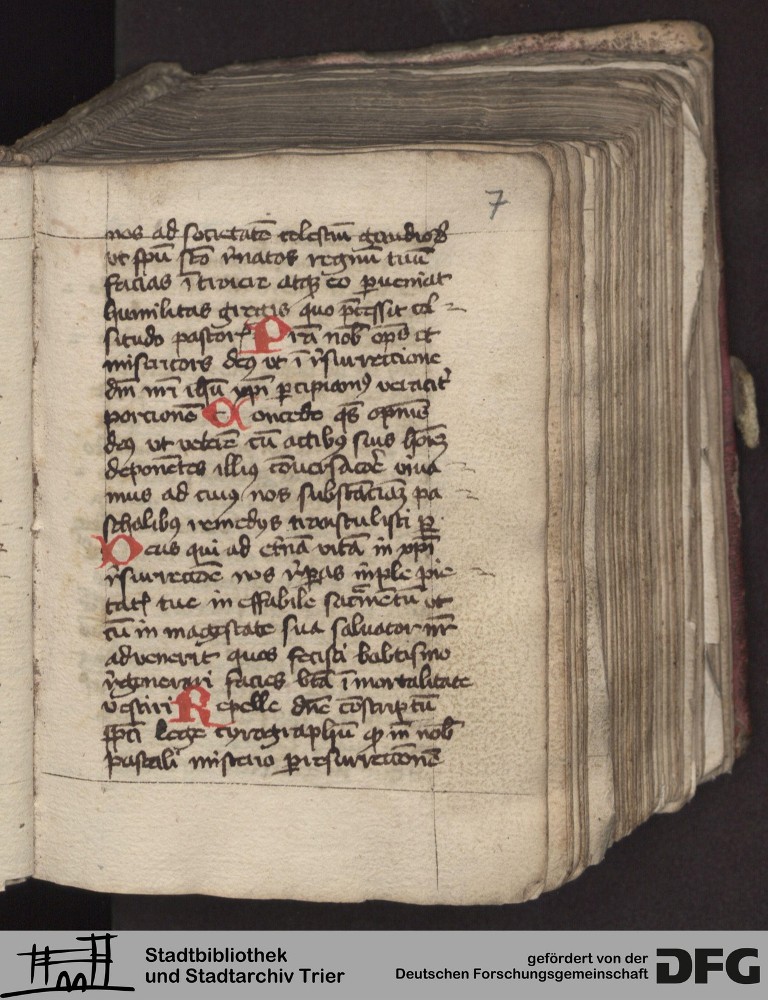 7
nos ad societatē celestiū gaudioꝝ
vt spū sc̄o r̄natos regnū tuū
facias ītroire atqꝫ eo ꝑueniat
humilitas gregis quo p̄cessit cel
situdo pastorꝭ Pr̄a nob̄ op̄s et
misericors deꝰ vt ī r̄surrectione
dn̄i nr̄i ih̄u xp̄i ꝑcipiamꝰ veracit̄
porcionē Concede qs̄ opn̄s
deꝰ vt veterē cū actibꝰ suis hoīem
deponētes illiꝰ cōuersacōe viua
mus ad cuiꝰ nos substāciaꝫ pa
schalibꝰ remedijs transtulisti ꝑ
Deus qui ad et̄nā vitā in xp̄i
r̄surrectōe nos r̄ꝑas imple pie
tatꝭ tue in effabile sacr̄mētū vt
cū in magestate sua saluator nr̄
aduenerit quos fecisti babtismo
r̄generari facies bt̄a īmortalitate
vestiri Repelle dn̄e cōscriptū
pct̄i lege cyrographū qd̄ in nob̄
pascali misterio ꝑ resurrectionē
Stadtbibliothek
und Stadtarchiv Trier
gefördert von der
Deutschen Forschungsgemeinschaft
DFG